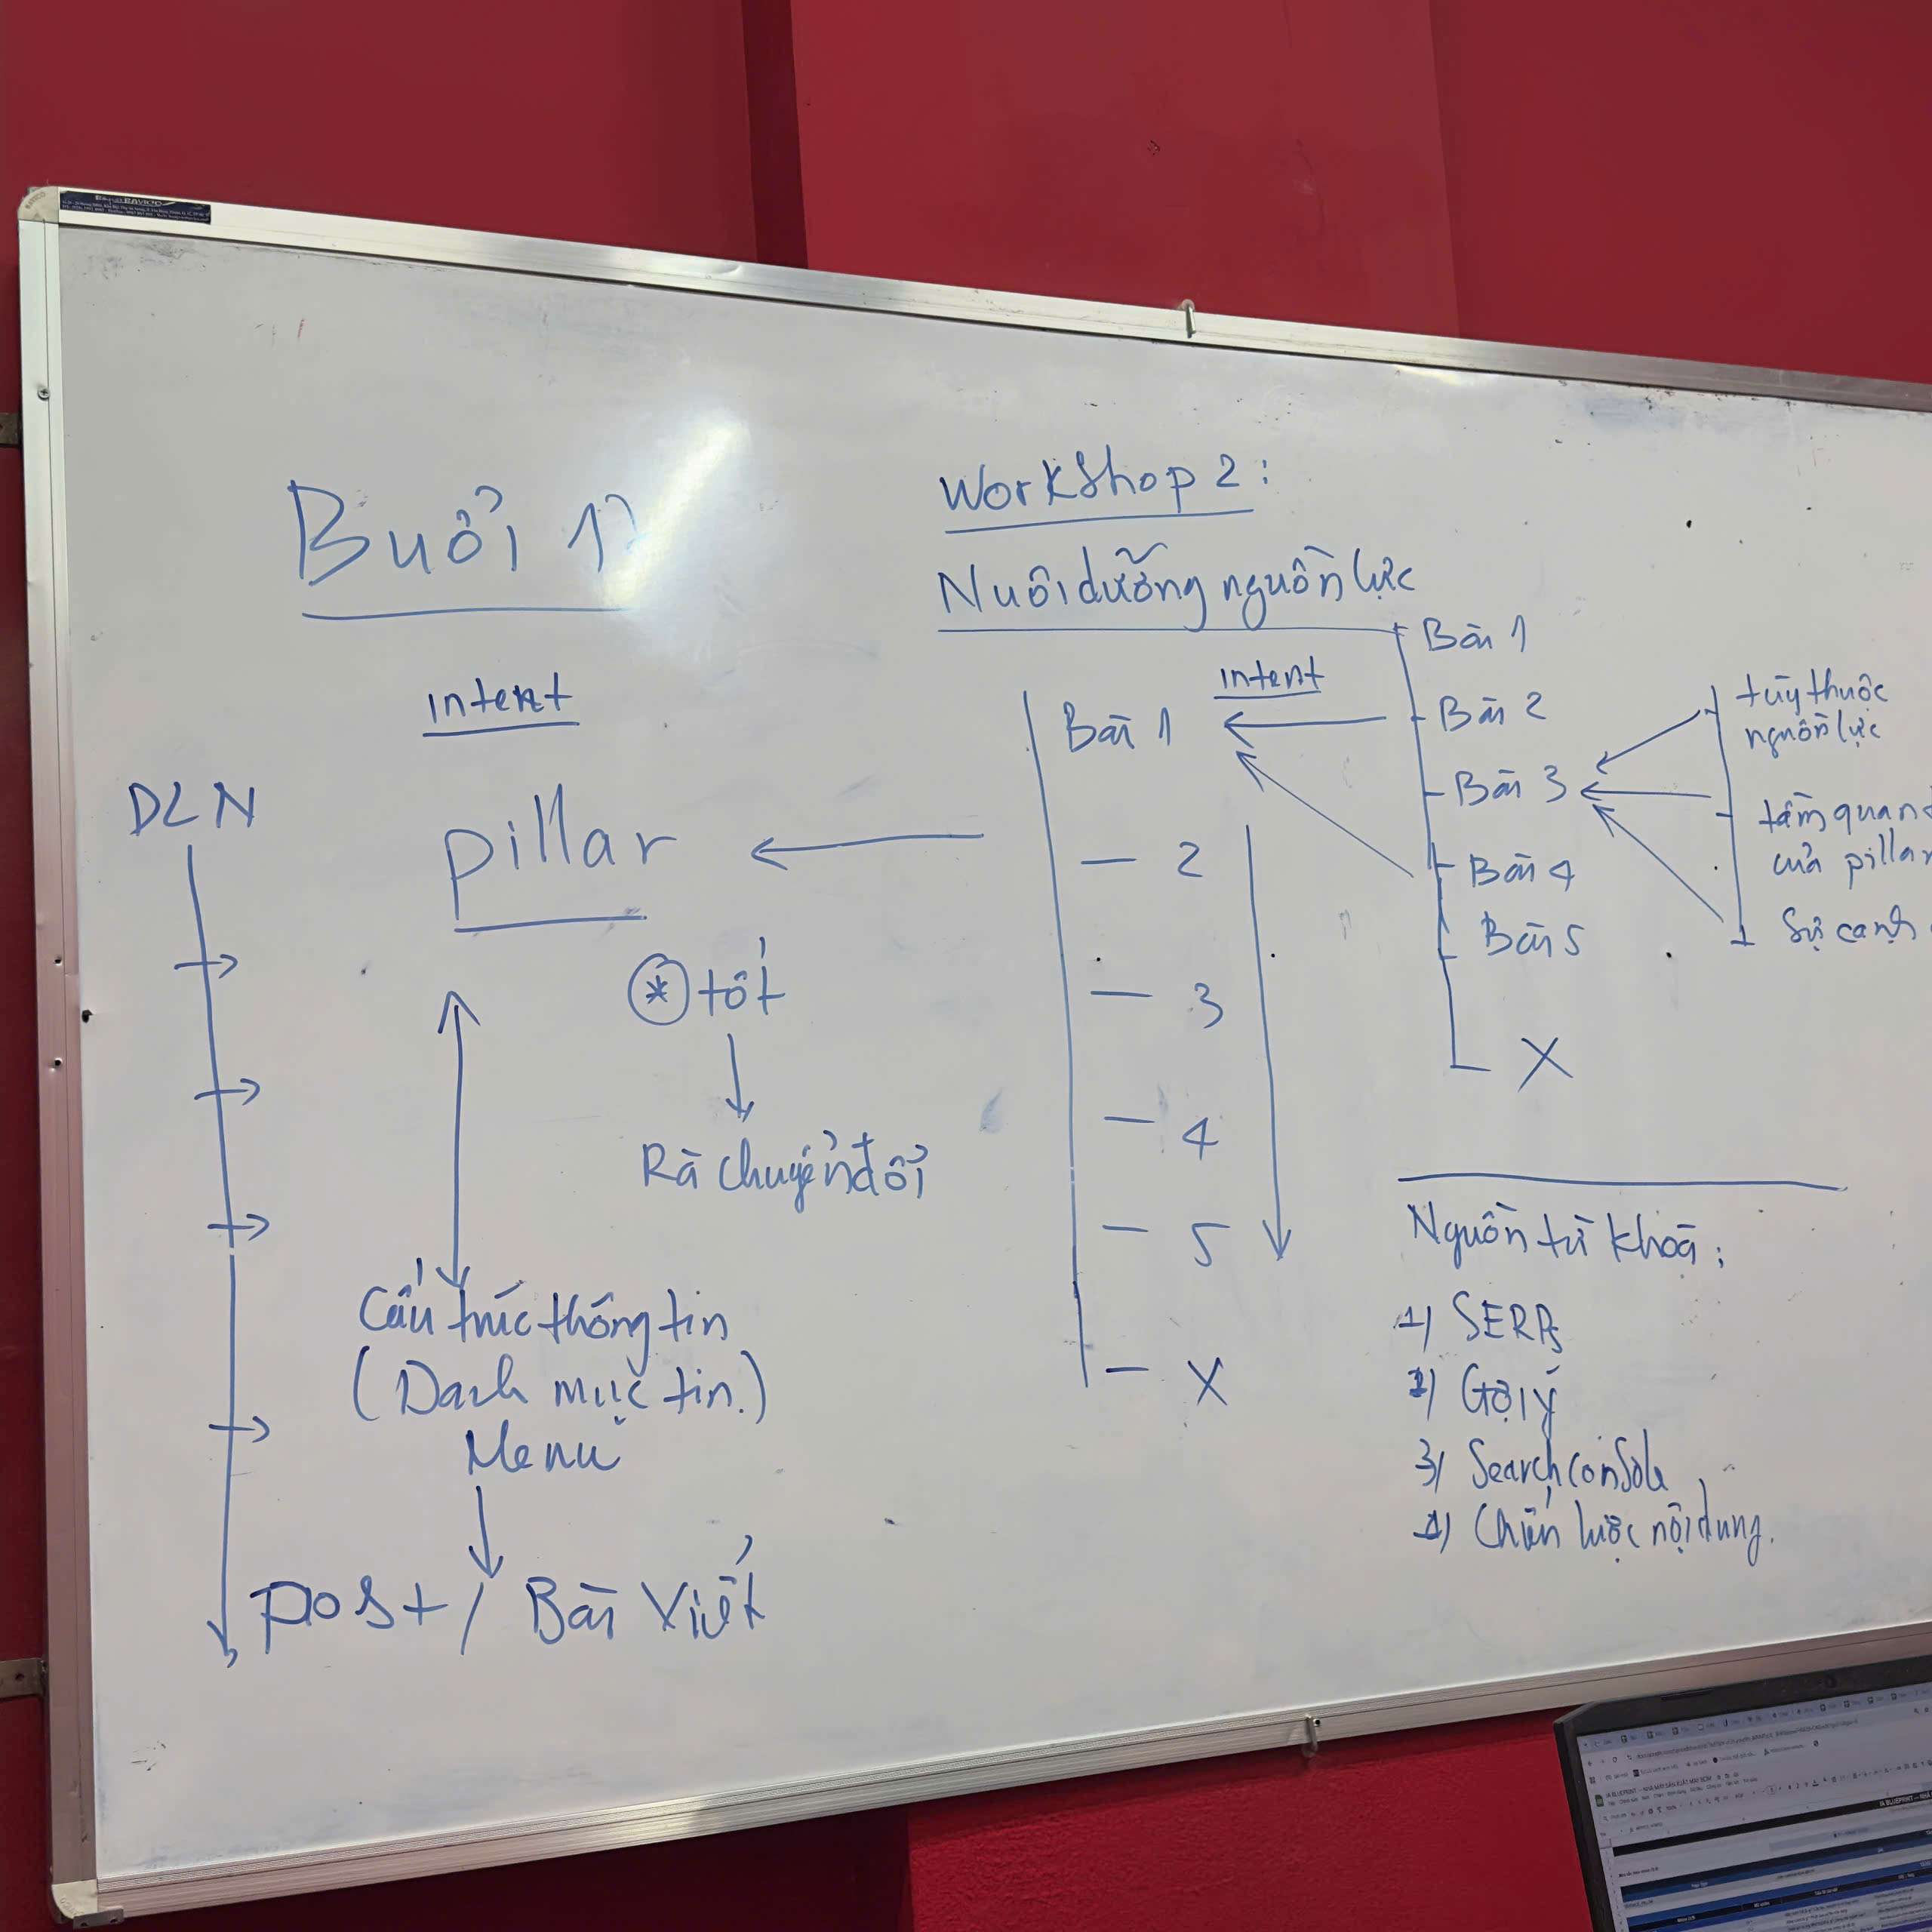 Buổi 12
intent
DLN
pillar
* tốt
Rà chuyển đổi
Cấu trúc thông tin
(Danh mục tin.)
Menu
post / Bài Viết
Workshop 2:
Nuôi dưỡng nguồn lực
intent
Bài 1
2
3
4
5
X
Bài 1
Bài 2
Bài 3
Bài 4
Bài 5
X
tùy thuộc
nguồn lực
tầm quan
của pillar
Sự cạnh
Nguồn từ khoá:
1) SERPs
2) Gợi ý
3) Search console
4) Chiến lược nội dung.